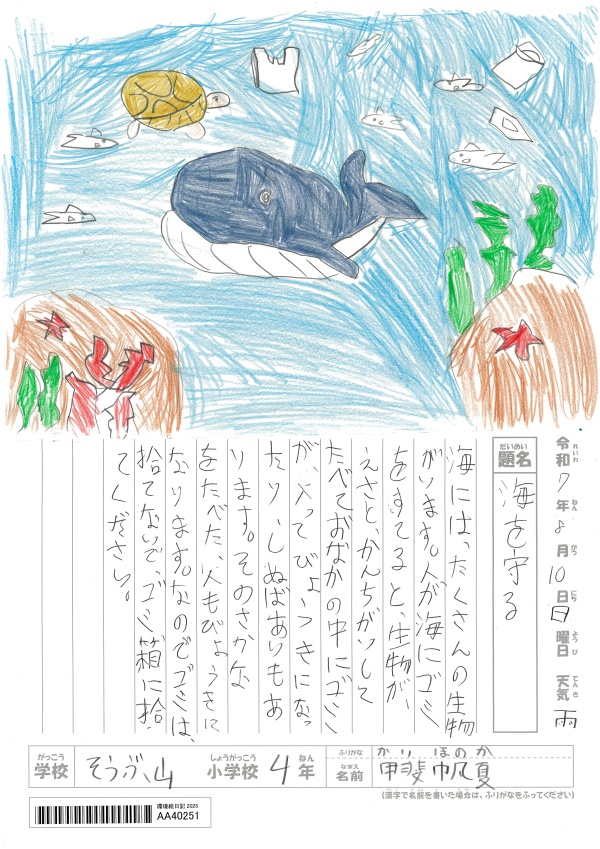 令和7年8月10日日曜日 天気 雨
れいわ ねん がつ にち ようび てんき
だいめい
題名 海を守る
海には、たくさんの生物
がいます。人が海にゴミ
をすてると、生物が、
えさと、かんちがいして
たべておなかの中にゴミ
が、入ってびょうきになっ
たり、しぬばあいもあ
ります。そのさかな
をたべた、人もびょうきに
なります。なのでゴミは、
捨てないで、ゴミ箱に捨
ててください。
がっこう しょうがっこう ねん
学校 そうぶ山 小学校 4年
ふりがな かい ほのか
なまえ
名前 甲斐 帆夏
(漢字で名前を書いた場合は、ふりがなをふってください)
環境絵日記 2025
AA40251